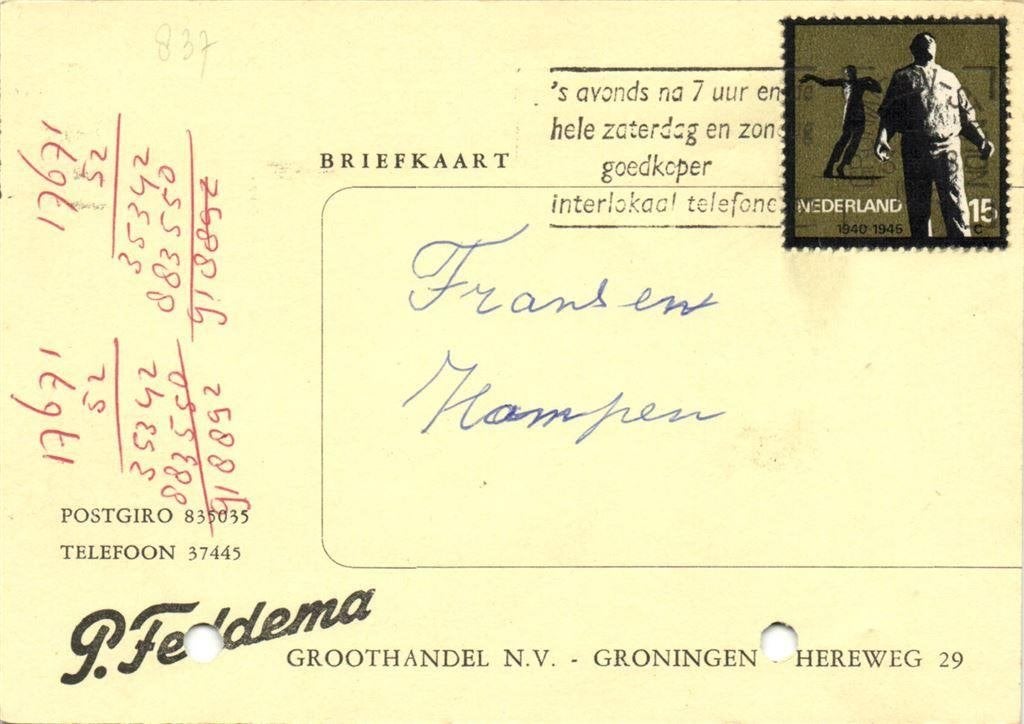 837
's avonds na 7 uur en de
hele zaterdag en zondag
goedkoper
interlokaal telefone
BRIEFKAART
NEDERLAND
15
c
1940-1945
Fransen
Kampen
17671
52
35342
883550
918892
17671
52
35342
883550
918892
POSTGIRO 835035
TELEFOON 37445
P. Feddema
GROOTHANDEL N.V. - GRONINGEN HEREWEG 29